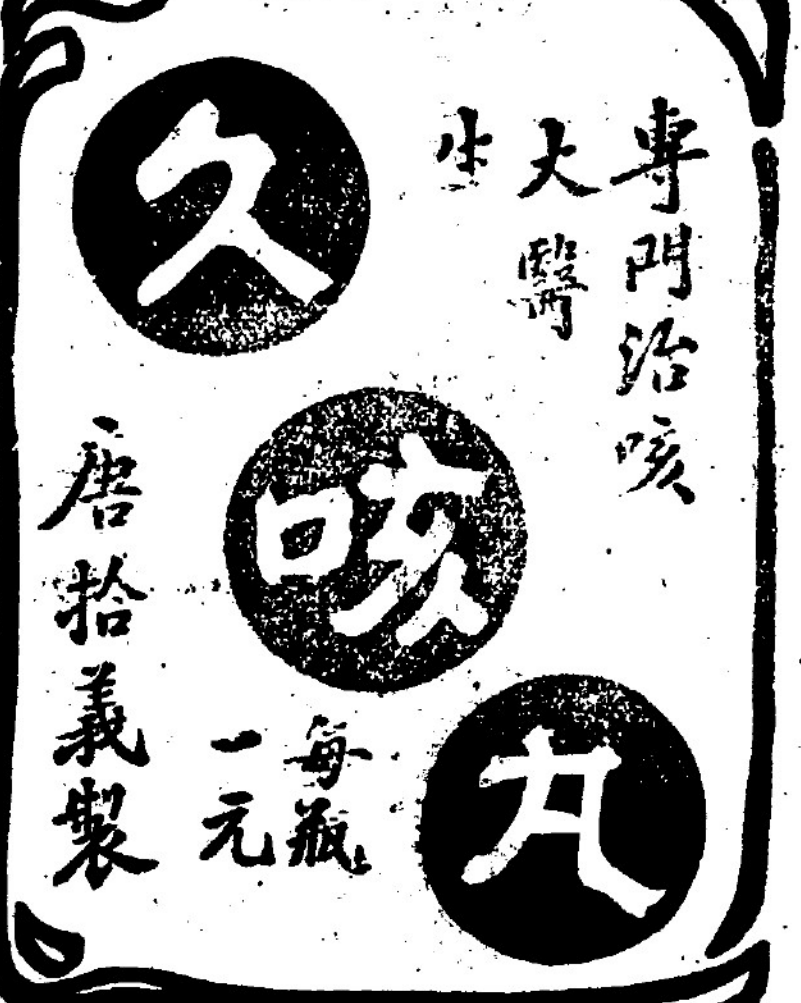 專門治咳
大醫
生
久咳丸
每瓶
一元
唐拾義製